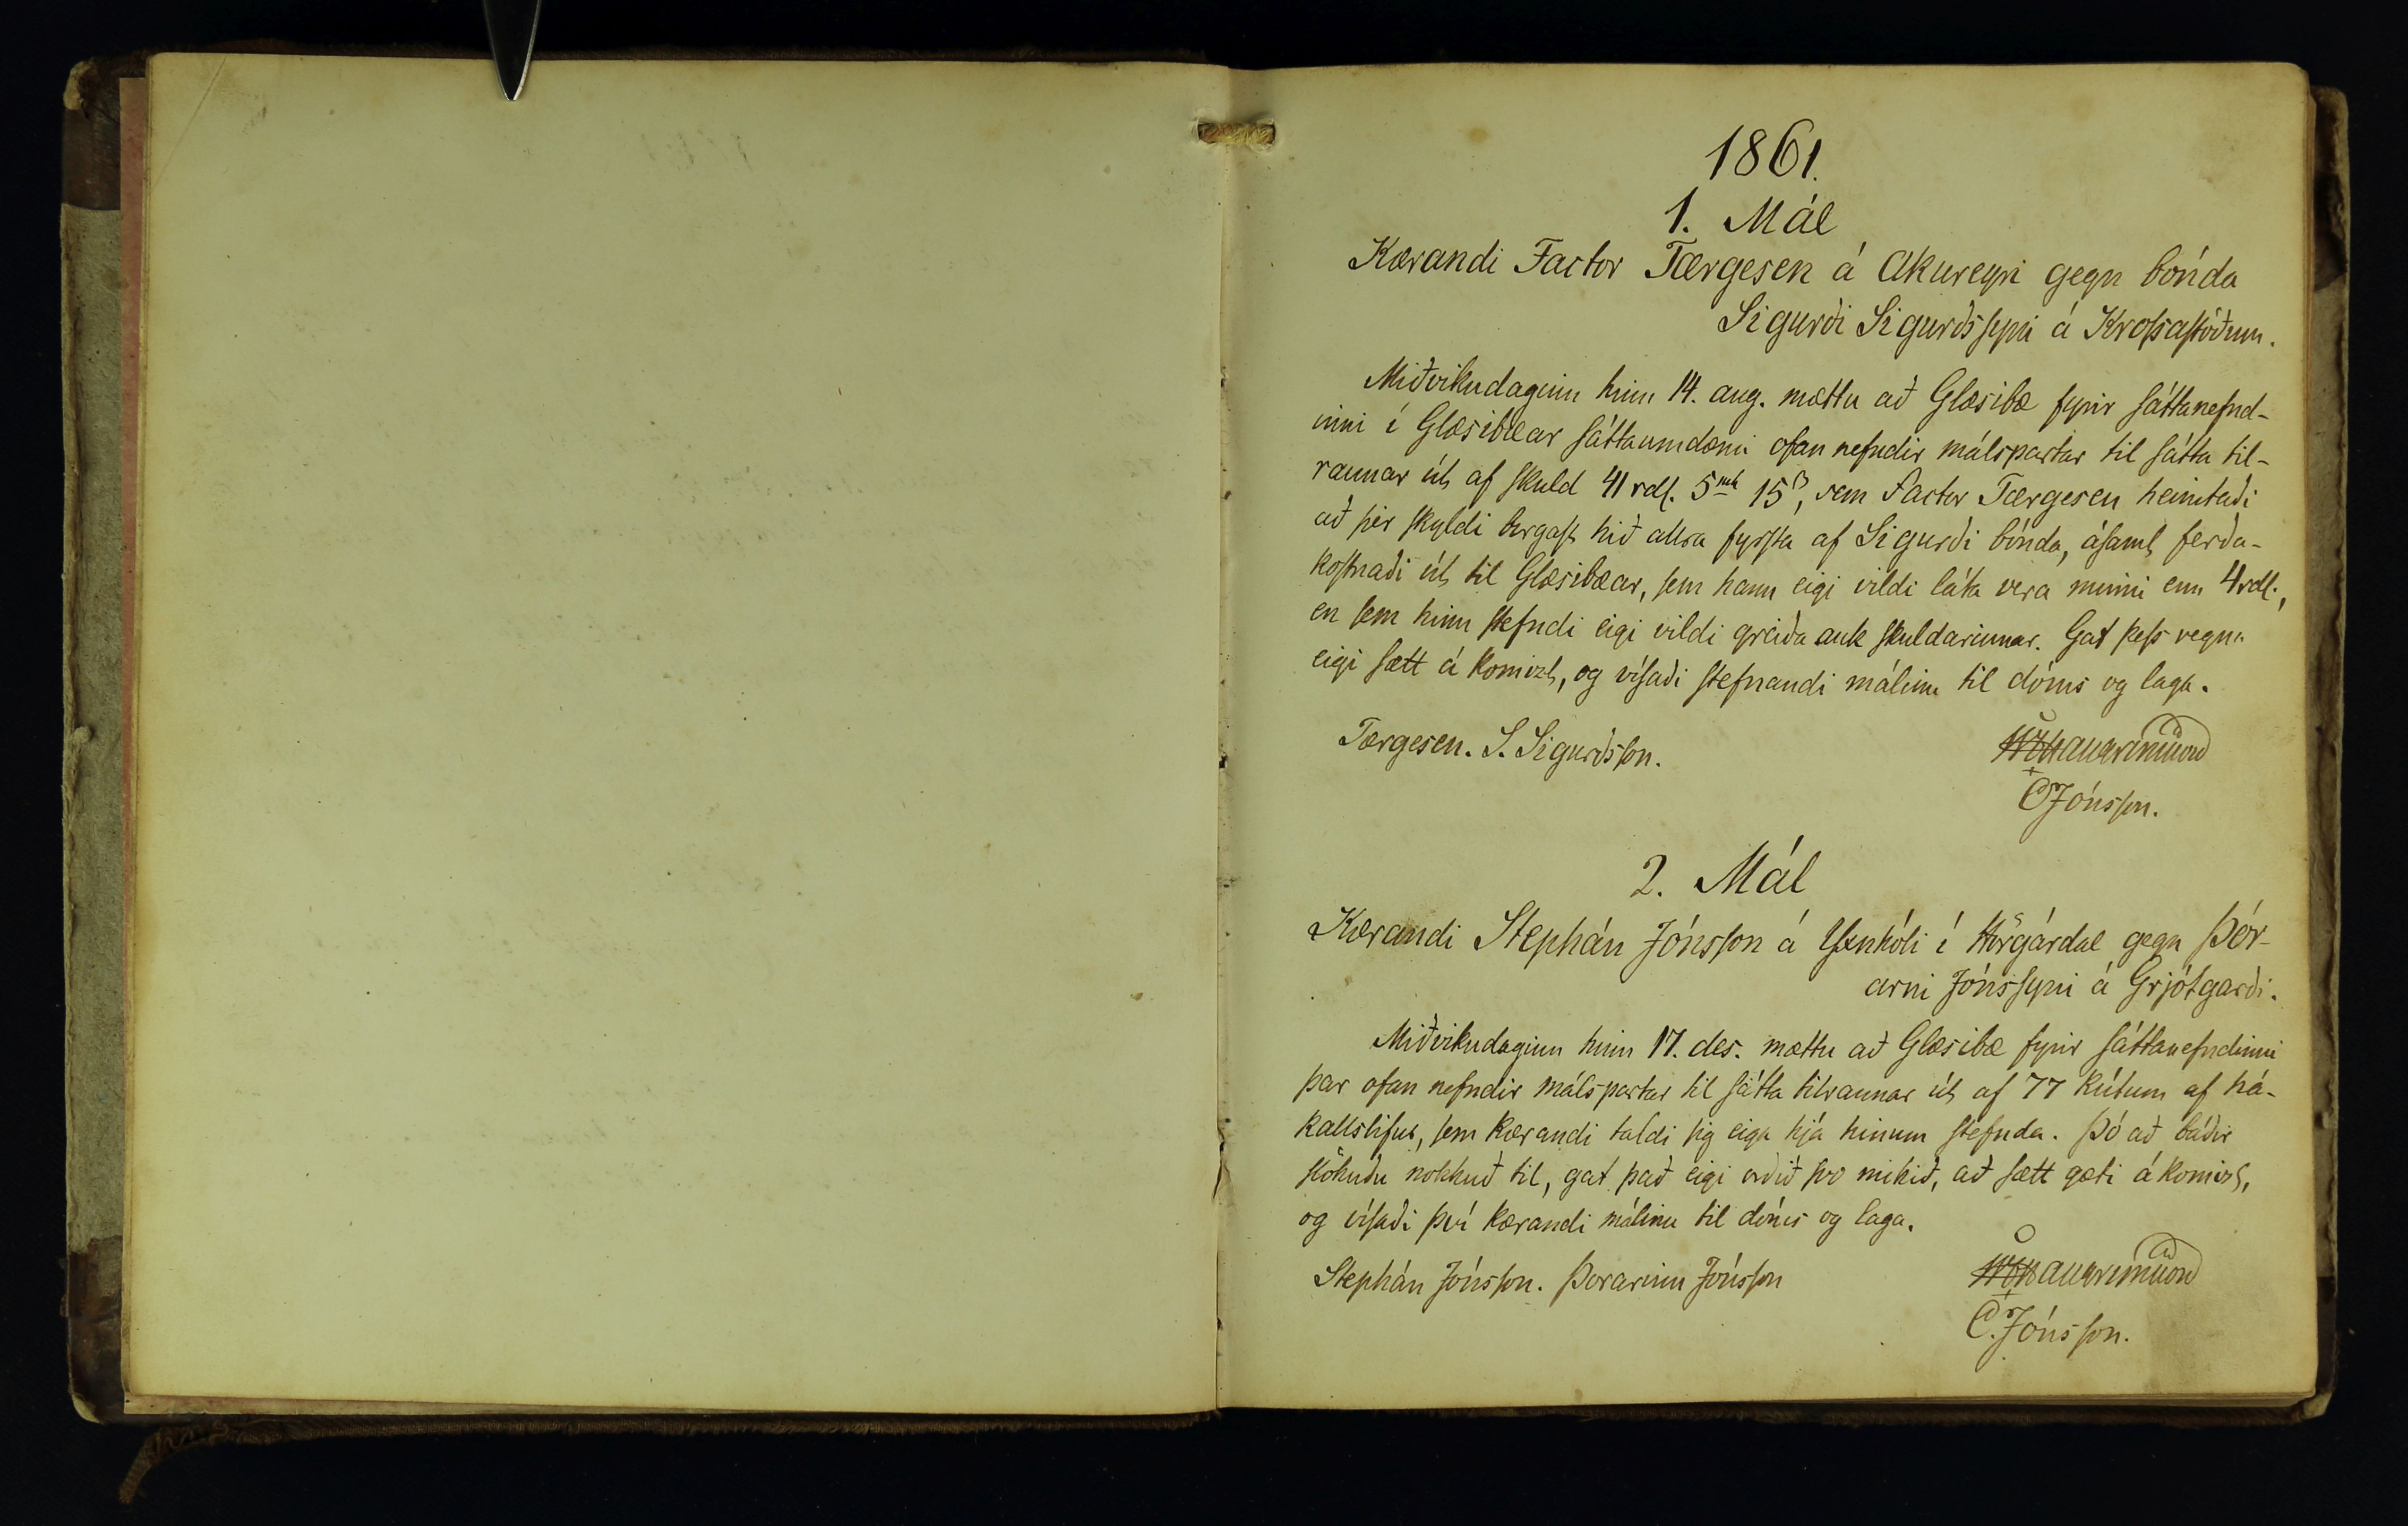 1861.
1. Mál
Kærandi Factor Tærgesen á Akureyri gegn bónda
Sigurði Sigurðsſyni á Kroſsaſtöðum.
Miðvikudaginn hinn 14. aug. mættu að Glæsibæ fyrir ſáttanefnd-
inni í Glæsibæar ſáttaumdæmi ofan nefndir málspartar til ſátta til-
raunar út af ſkuld 41 rdl. 5 mk 15 ß, sem Factor Tærgesen heimtaði
að ſér ſkyldi borgaſt hið allra fyrſta af Sigurði bónda, áſamt ferða-
koſtnaði út til Glæsibæar, ſem hann eigi vildi láta vera minni enn 4 rdl.,
en ſem hinn ſtefndi eigi vildi greiða auk ſkuldarinnar. Gat þeſs vegna
eigi ſætt á komizt, og víſaði ſtefnandi málinu til dóms og laga.
Tærgesen. S. Sigurðsſon.
Jónsſon.
2. Mál
Kærandi Stephán Jónsſon á Yxnhóli í Hörgárdal gegn Þór-
arni Jónsſyni á Grjótgarði.
Miðvikudaginn hinn 17. des. mættu að Glæsibæ fyrir ſáttanefndinni
þar ofan nefndir málspartar til ſátta tilraunar út af 77 kútum af há-
kallslifur, ſem kærandi taldi ſig eiga hjá hinum ſtefnda. Þó að báðir
ſlökuðu nokkuð til, gat það eigi orðið ſvo mikið, að ſætt gæti á komizt,
og víſaði því kærandi málinu til dóms og laga.
Stephán Jónsſon. Þorarinn Jónsſon
Jónsſon.